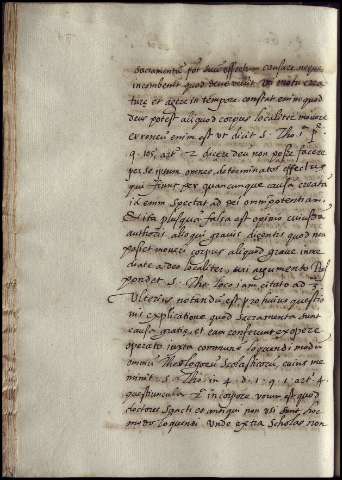 sacramentũ suũ effectum causare neque
incombenit quod Deus velut
ture et agere in tempore. constat enim quod
deus potest aliquod corpus localiter mouere
erroneũ enim est vt dicit S. Tho. 1 p.
q. 105. art. 2 dicere deũ non posse facere
per se ipsum omnes determinatos effectus
qui fiunt per quancunque causã creatã
id enim spectat ad dei omnipotentiam
& ita plusquã falsa est opinio cuiusdã
authoris alioqui grauis dicentis quod non
posset moueri corpus aliquid graue inme
diate a deo localiter, cui argumento Res
pondet S. Tho. loco iam citato ad 3
Vlterius notandũ est pro huius questio
nis explicatione quod Sacramenta sunt
causa gratie, et eam conferunt ex opere
operato iuxta communẽ loquendi modũ
omniũ Theologorũ Scholasticorũ, cuius me
minit S. Tho. in 4. d. 1. q. 1. art. 4.
questiuncula 2 in corpore verum est quod
doctores sancti et antiqui non vsi hoc
modo loquendi. Vnde extra scholas non